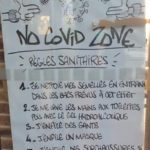 NO COVID ZONE
RÈGLES SANITAIRES
1. JE NETTOIE MES SEMELLES EN ENTRANT
DANS LES BACS PRÉVUS À CET EFFET
2. JE ME LAVE LES MAINS AUX TOILETTES
OU AVEC LE GEL HYDROALCOOLIQUE
3. J'ENFILE DES GANTS
4. J'ENFILE UN MASQUE